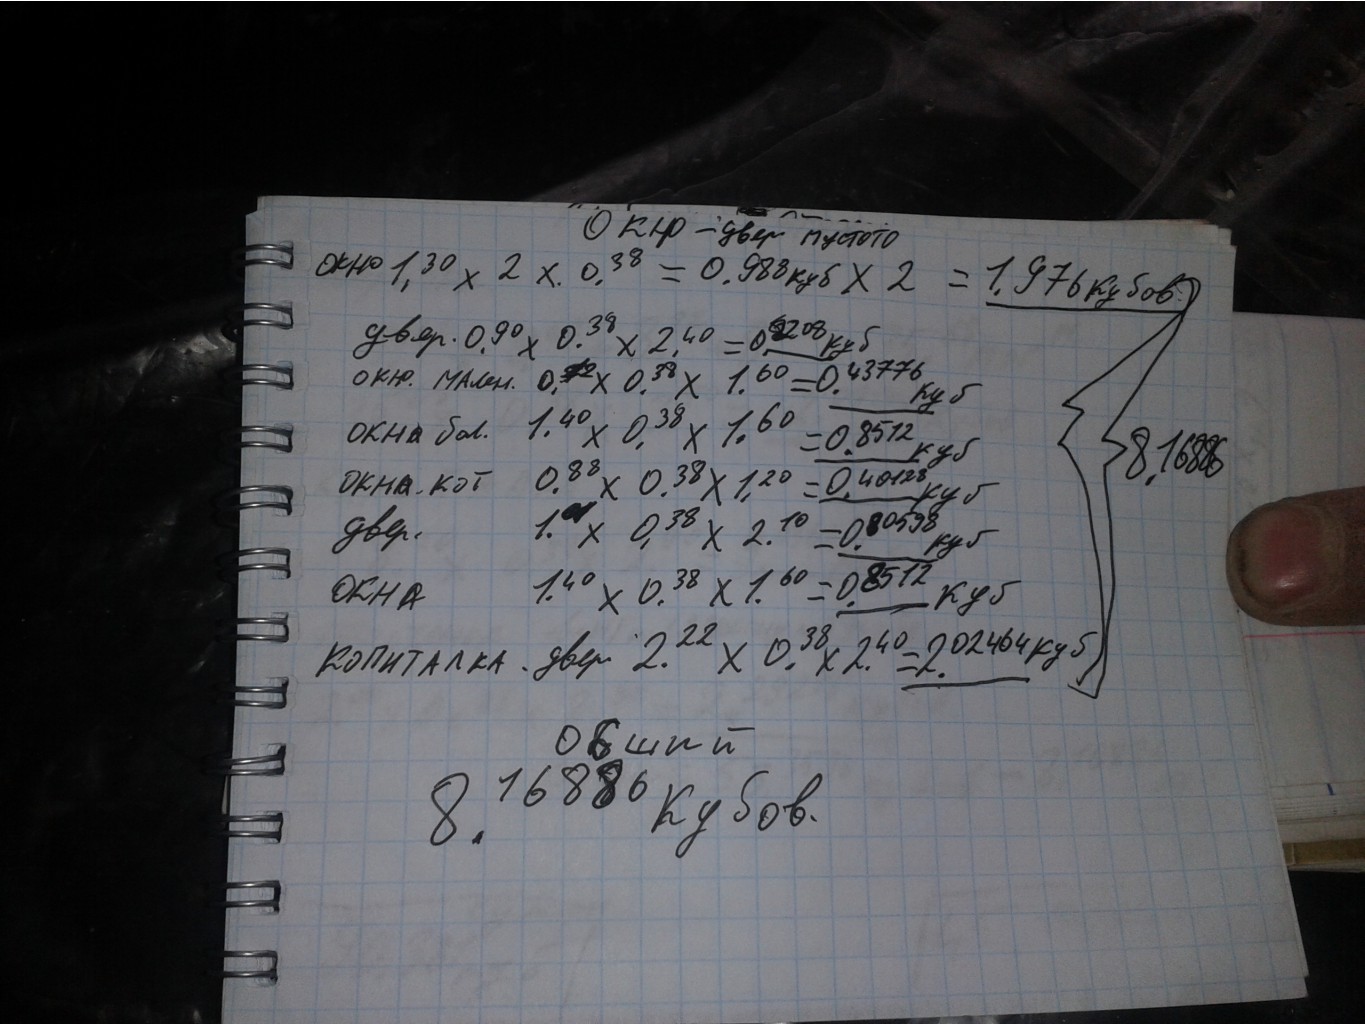 Окно – двер пустото
окно 1,30 х 2 х 0.38 = 0.988 куб х 2 = 1.976 кубов.
двер. 0,90 х 0.38 х 2,40 = 0,8208 куб
окно. мален. 0,72 х 0.38 х 1.60 = 0.43776 куб
окна бол. 1.40 х 0,38 х 1.60 = 0.8512 куб
окна. кот 0.88 х 0.38 х 1,20 = 0.40128 куб
двер. 1. х 0,38 х 2.10 = 0.80598 куб
окна 1.40 х 0.38 х 1.60 = 0.8512 куб
копиталка. двер 2.22 х 0.38 х 2.40 = 2.02464 куб
8,16886
обший
8.16886 кубов.